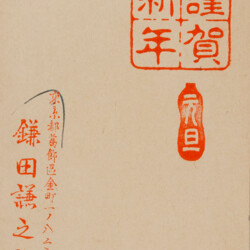 謹賀
新年
元旦
東京都葛飾区金町一ノ八
鎌田謙之